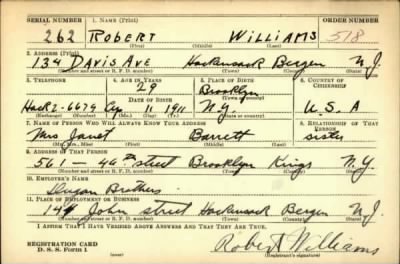 SERIAL NUMBER 1. NAME (Print) ORDER NUMBER
262 ROBERT WILLIAMS 518
(First) (Middle) (Last)
2. ADDRESS (Print)
134 DAVIS AVE Hackensack Bergen N.J.
(Number and street or R. F. D. number) (Town) (County) (State)
3. TELEPHONE 4. AGE IN YEARS 5. PLACE OF BIRTH 6. COUNTRY OF CITIZENSHIP
29 Brooklyn
DATE OF BIRTH (Town or county)
Hack 2-6679 11 1911 N.Y. U.S.A
(Exchange) (Number) (Mo.) (Day) (Yr.) (State or country)
7. NAME OF PERSON WHO WILL ALWAYS KNOW YOUR ADDRESS 8. RELATIONSHIP OF THAT PERSON
Mrs Janet Barrett sister
(Mr., Mrs., Miss) (First) (Middle) (Last)
9. ADDRESS OF THAT PERSON
561 - 46th street Brooklyn Kings N.Y.
(Number and street or R. F. D. number) (Town) (County) (State)
10. EMPLOYER'S NAME
Dugan Brothers
11. PLACE OF EMPLOYMENT OR BUSINESS
John street Hackensack Bergen N.J.
(Number and street or R. F. D. number) (Town) (County) (State)
I AFFIRM THAT I HAVE VERIFIED ABOVE ANSWERS AND THAT THEY ARE TRUE.
REGISTRATION CARD
D. S. S. Form 1 Robert Williams
(Registrant's signature)